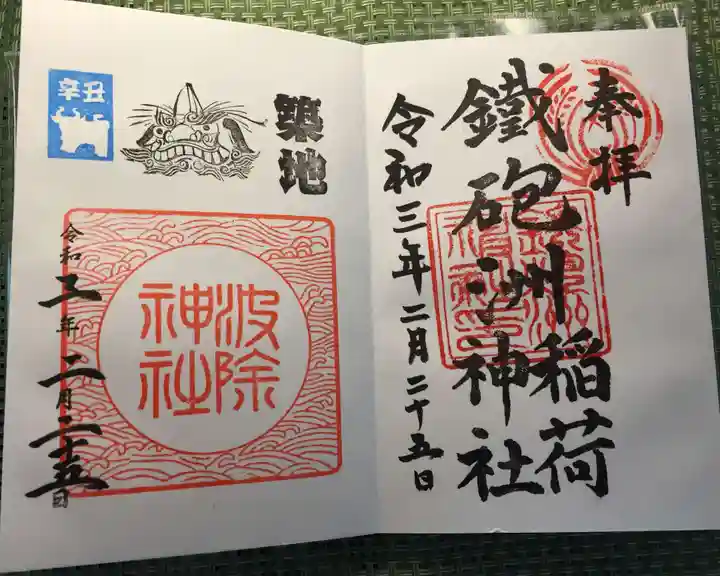 奉拝
鐵砲洲稲荷神社
令和三年二月二十五日
築地
辛丑
波除
神社
令和三年二月二十五日